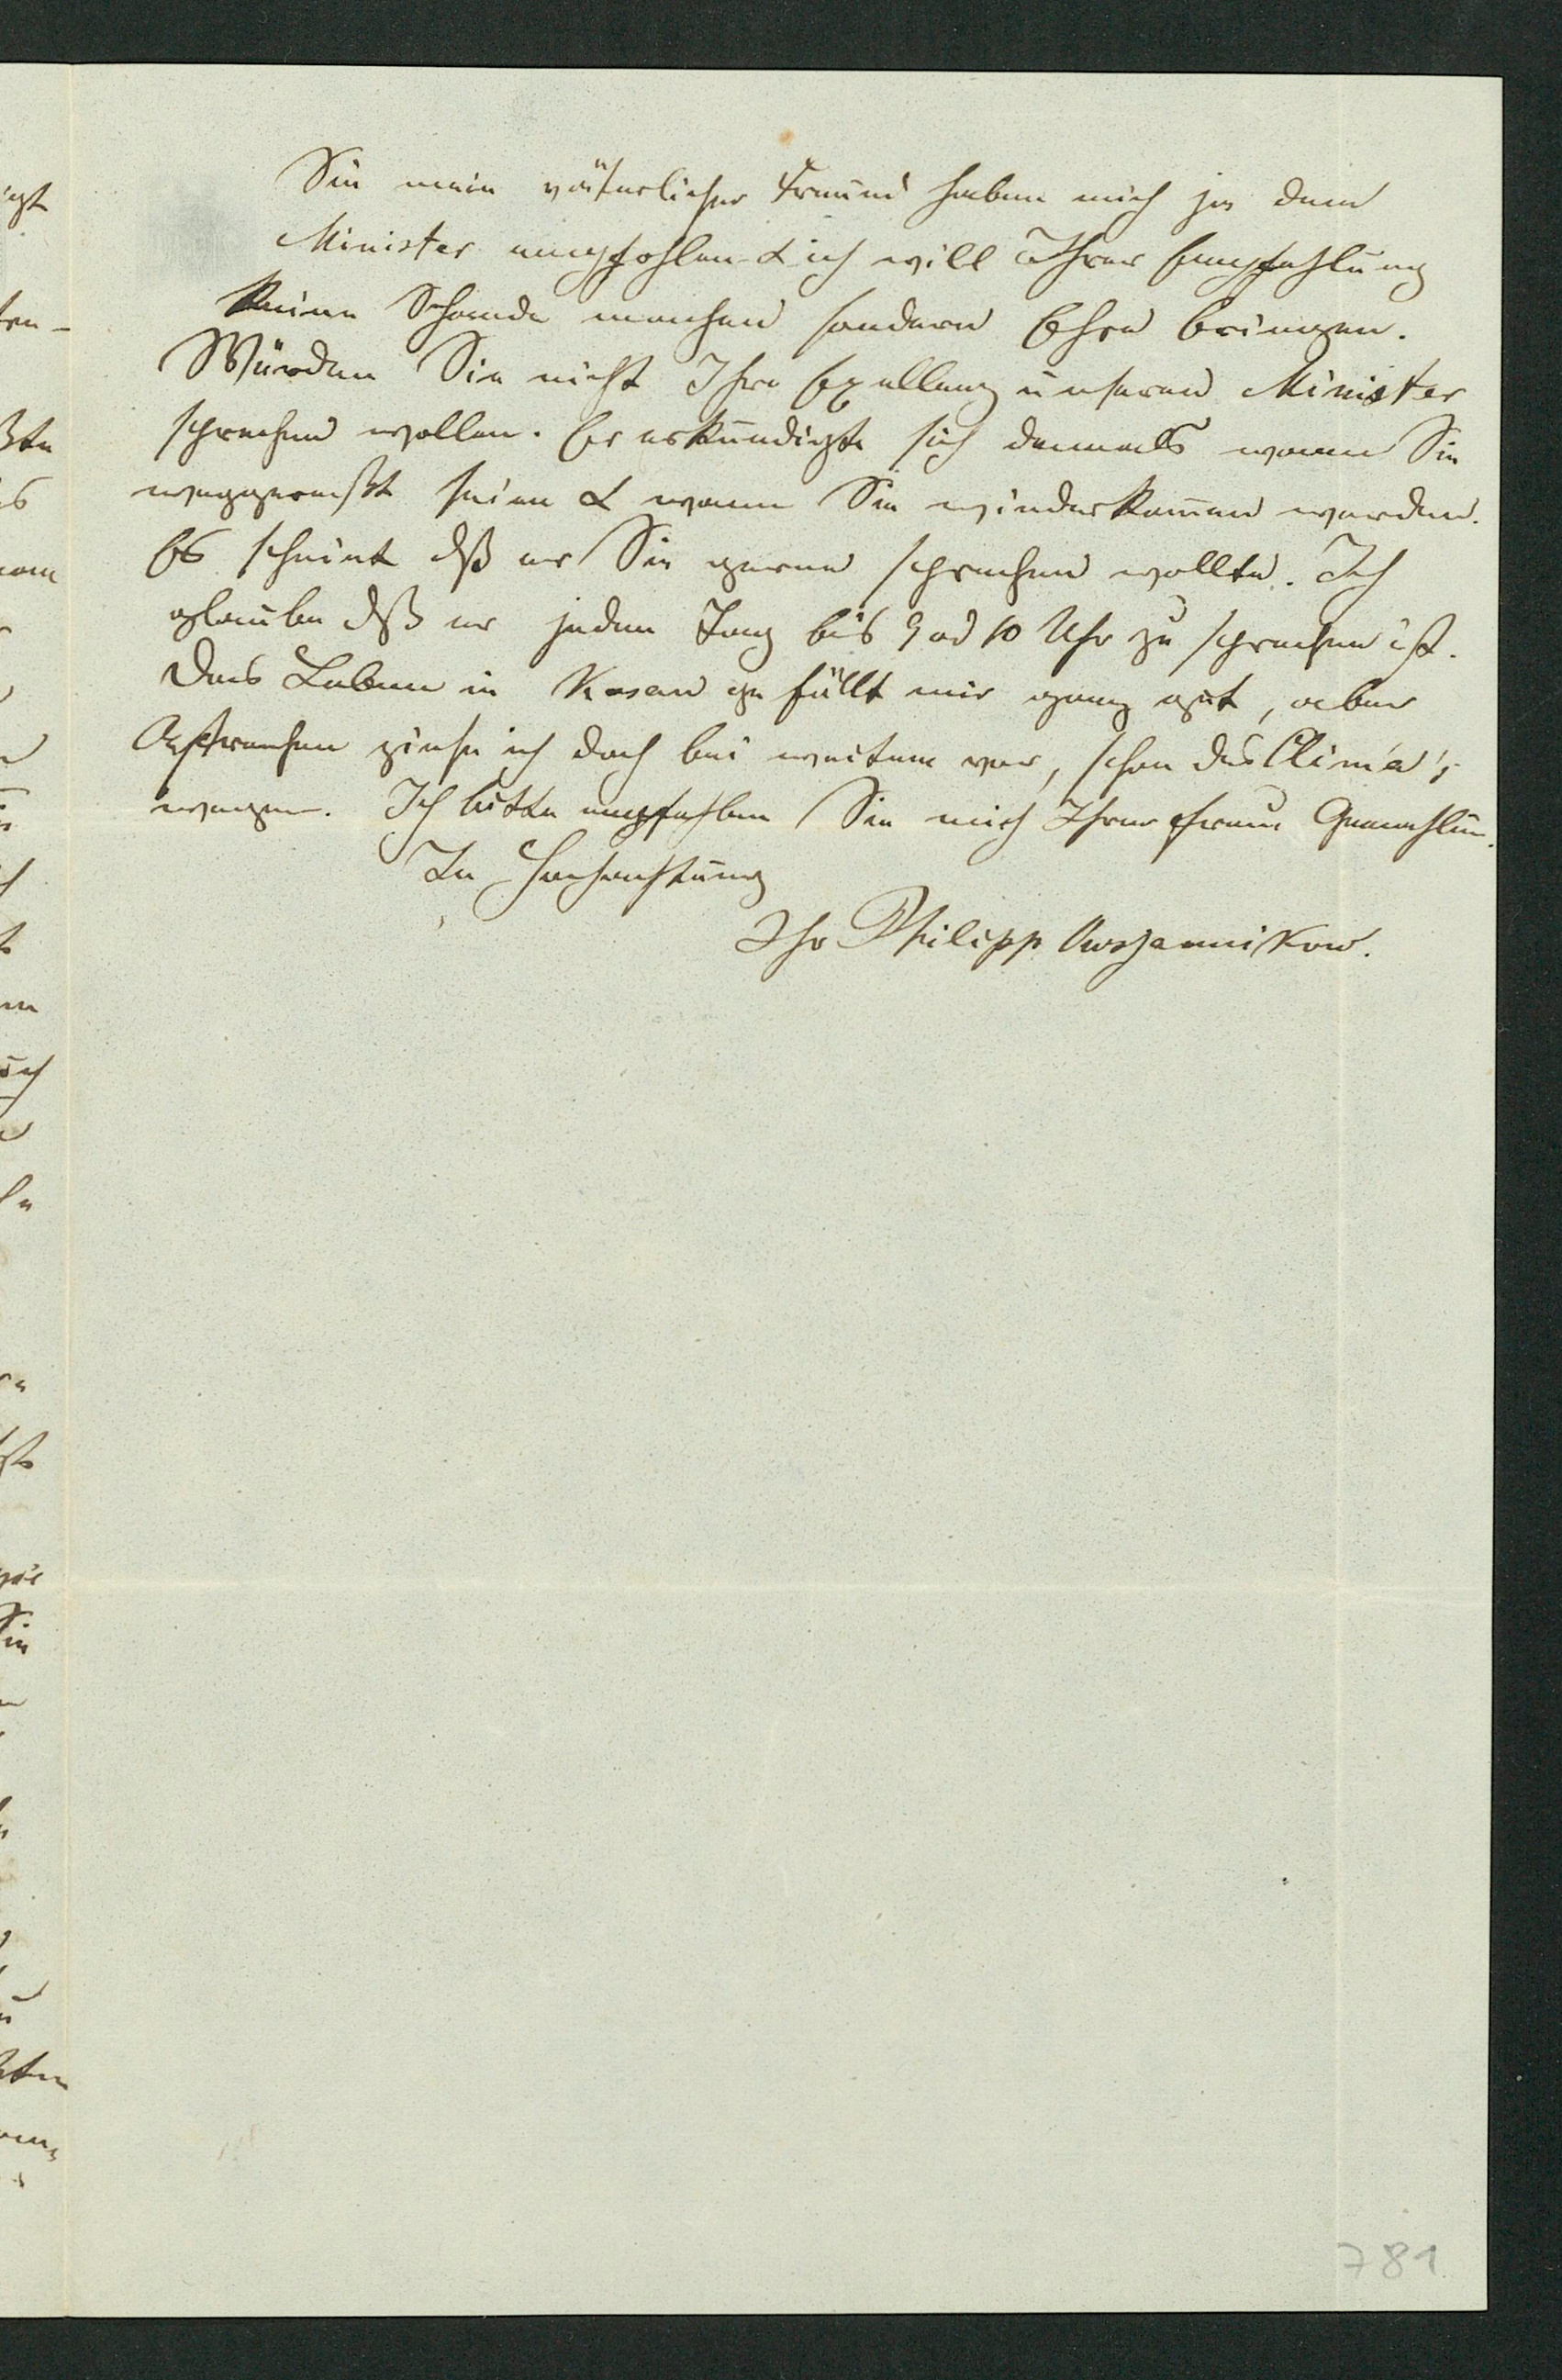 Sie mein väterlicher Freund haben mich ja dem
Minister empfohlen & ich will Ihrer Empfehlung
keine Schande machen sondern Ehre bringen.
Würden Sie nicht Ihre Excellenz unseren Minister
sprechen wollen. Er erkundigte sich damals wann Sie
weggereißt seien & wann Sie wiederkom̅en werden.
Es scheint dß er Sie gerne sprechen wollte. Ich
glaube dß er jeden Tag bis 9 od 10 Uhr zu sprechen ist.
Das Leben in Kasan gefällt mir ganz gut, aber
Astrachan ziehe ich doch bei weitem vor, schon des Clima's
wegen. Ich bitte empfehlen Sie mich Ihrer Frau Gemahlin.
In Hochachtung
Ihr Philipp Owsjannikow.
781